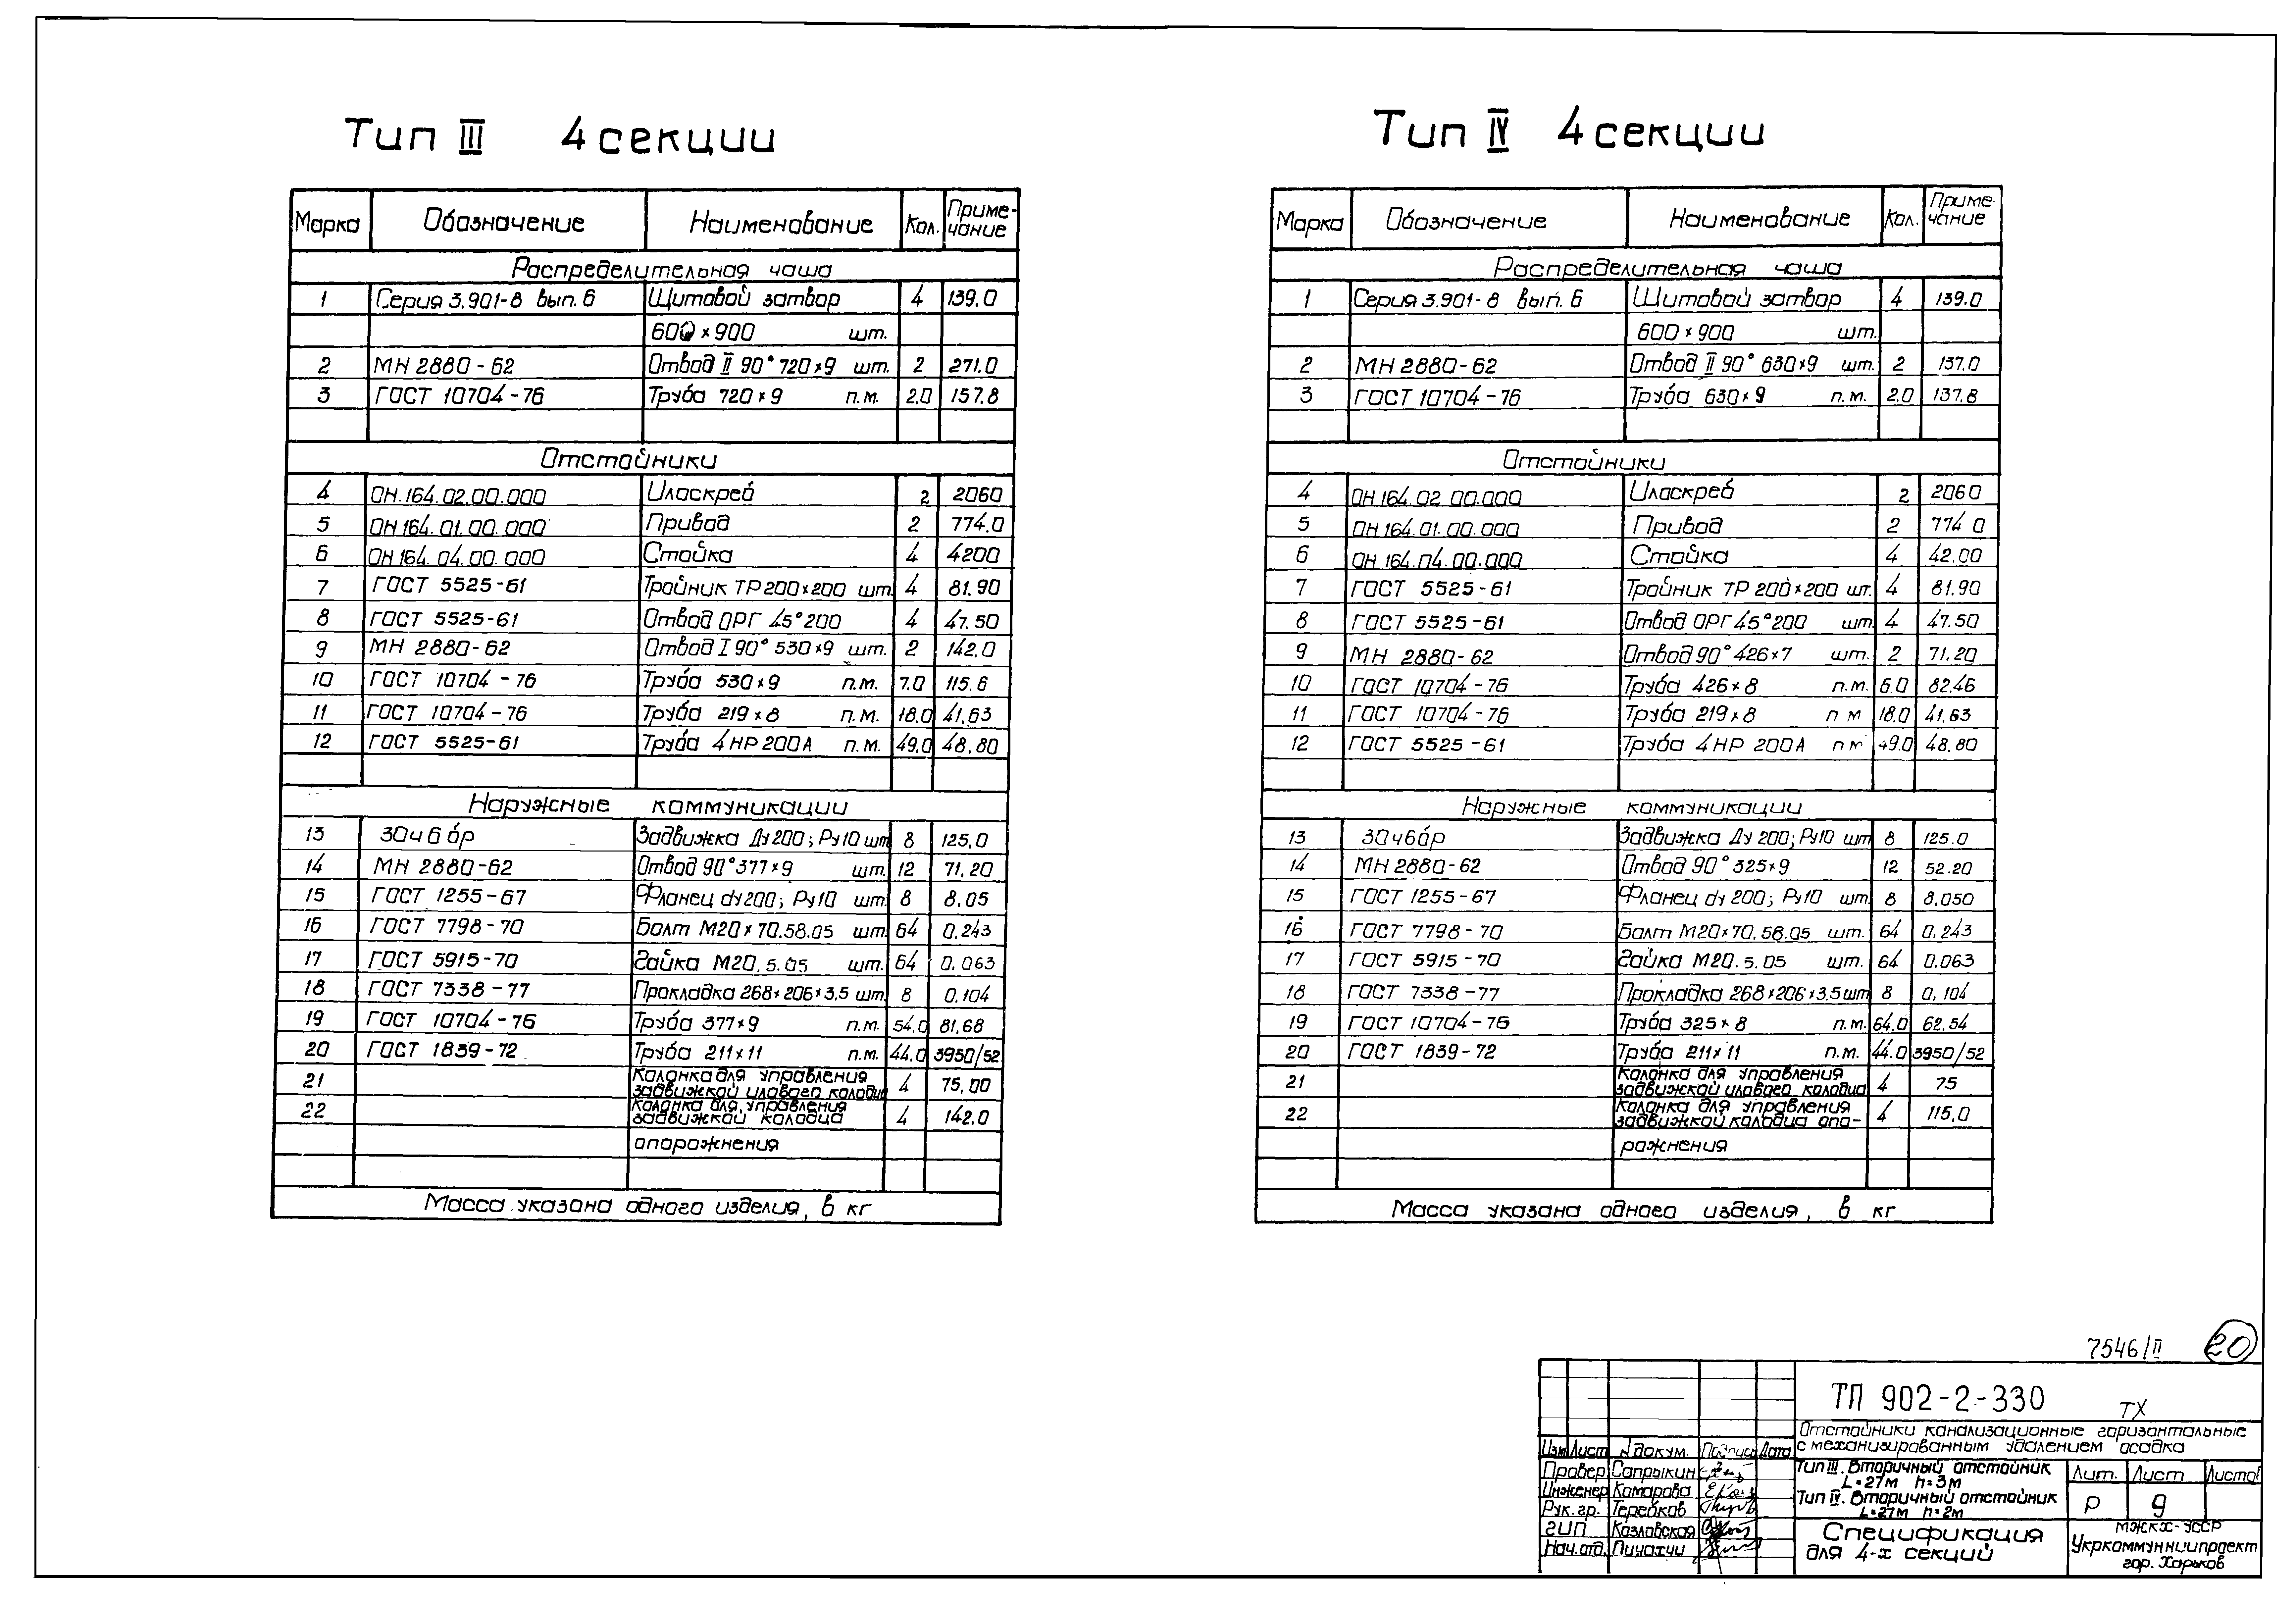 Тип III 4 секции
Марка Обозначение Наименование Кол. Приме-
чание
Распределительная чаша
1 Серия 3.901-8 вып. 6 Щитовой затвор 4 139.0
600×900 шт.
2 МН 2880-62 Отвод II 90° 720×9 шт. 2 271.0
3 ГОСТ 10704-76 Труба 720×9 п.м. 2.0 157.8
Отстойники
4 ОН.164.02.00.000 Илоскреб 2 2060
5 ОН 164.01.00.000 Привод 2 774.0
6 ОН 164.04.00.000 Стойка 4 4200
7 ГОСТ 5525-61 Тройник ТР 200×200 шт. 4 81.90
8 ГОСТ 5525-61 Отвод ОРГ 45° 200 4 47.50
9 МН 2880-62 Отвод I 90° 530×9 шт. 2 142.0
10 ГОСТ 10704-76 Труба 530×9 п.м. 7.0 115.6
11 ГОСТ 10704-76 Труба 219×8 п.м. 18.0 41.63
12 ГОСТ 5525-61 Труба ЧНР 200А п.м. 49.0 48.80
Наружные коммуникации
13 30ч6бр Задвижка Ду200; Ру10 шт 8 125.0
14 МН 2880-62 Отвод 90° 377×9 шт. 12 71.20
15 ГОСТ 1255-67 Фланец dу200; Ру10 шт. 8 8.05
16 ГОСТ 7798-70 Болт М20×70.58.05 шт. 64 0.243
17 ГОСТ 5915-70 Гайка М20.5.05 шт. 64 0.063
18 ГОСТ 7338-77 Прокладка 268×206×3.5 шт. 8 0.104
19 ГОСТ 10704-76 Труба 377×9 п.м. 54.0 81.68
20 ГОСТ 1839-72 Труба 211×11 п.м. 44.0 3950/52
21 Колонка для управления
задвижкой илового колодца 4 75.00
22 Колонка для управления
задвижкой колодца 4 142.0
опорожнения
Масса указана одного изделия, в кг
Тип IV 4 секции
Марка Обозначение Наименование Кол. Приме
чание
Распределительная чаша
1 Серия 3.901-8 вып. 6 Щитовой затвор 4 139.0
600×900 шт.
2 МН 2880-62 Отвод II 90° 630×9 шт. 2 137.0
3 ГОСТ 10704-76 Труба 630×9 п.м. 2.0 137.8
Отстойники
4 ОН 164.02 00.000 Илоскреб 2 2060
5 ОН 164.01.00.000 Привод 2 774 0
6 ОН 164.04.00.000 Стойка 4 42.00
7 ГОСТ 5525-61 Тройник ТР 200×200 шт. 4 81.90
8 ГОСТ 5525-61 Отвод ОРГ 45° 200 шт. 4 47.50
9 МН 2880-62 Отвод 90° 426×7 шт. 2 71.20
10 ГОСТ 10704-76 Труба 426×8 п.м. 6.0 82.46
11 ГОСТ 10704-76 Труба 219×8 п м 18.0 41.63
12 ГОСТ 5525-61 Труба ЧНР 200А п м 49.0 48.80
Наружные коммуникации
13 30ч6бр Задвижка Ду 200; Ру10 шт 8 125.0
14 МН 2880-62 Отвод 90° 325×9 12 52.20
15 ГОСТ 1255-67 Фланец dу 200; Ру10 шт. 8 8.050
16 ГОСТ 7798-70 Болт М20×70.58.05 шт. 64 0.243
17 ГОСТ 5915-70 Гайка М20.5.05 шт. 64 0.063
18 ГОСТ 7338-77 Прокладка 268×206×3.5 шт 8 0.104
19 ГОСТ 10704-76 Труба 325×8 п.м. 64.0 62.54
20 ГОСТ 1839-72 Труба 211×11 п.м. 44.0 3950/52
21 Колонка для управления
задвижкой илового колодца 4 75
22 Колонка для управления
задвижкой колодца опо- 4 115.0
рожнения
Масса указана одного изделия, в кг
7546/II 20
ТП 902-2-330 ТХ
Отстойники канализационные горизонтальные
с механизированным удалением осадка
Изм Лист N докум. Подпись Дата
Провер Сапрыкин
Инженер Комарова
Рук. гр. Теребков
ГИП Козловская
Нач. отд. Пичахчи
Тип III. Вторичный отстойник
L=27м h=3м
Тип IV. Вторичный отстойник
L=27м h=2м
Лит. Лист Листов
Р 9
Спецификация
для 4-х секций
МЖКХ-УССР
Укркоммунниипроект
гор. Харьков